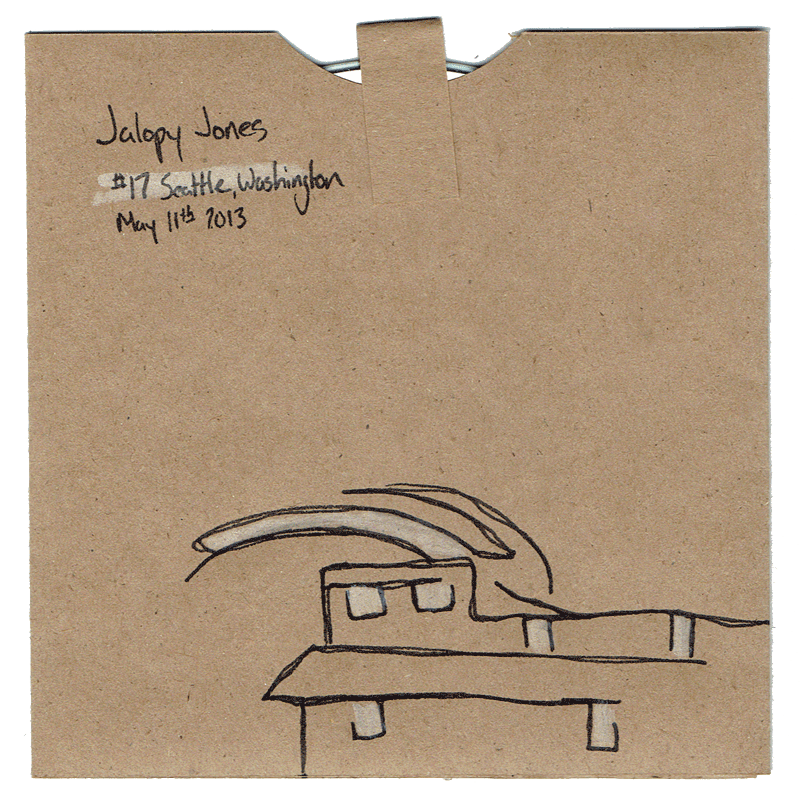 Jalopy Jones
#17 Seattle, Washington
May 11th 2013